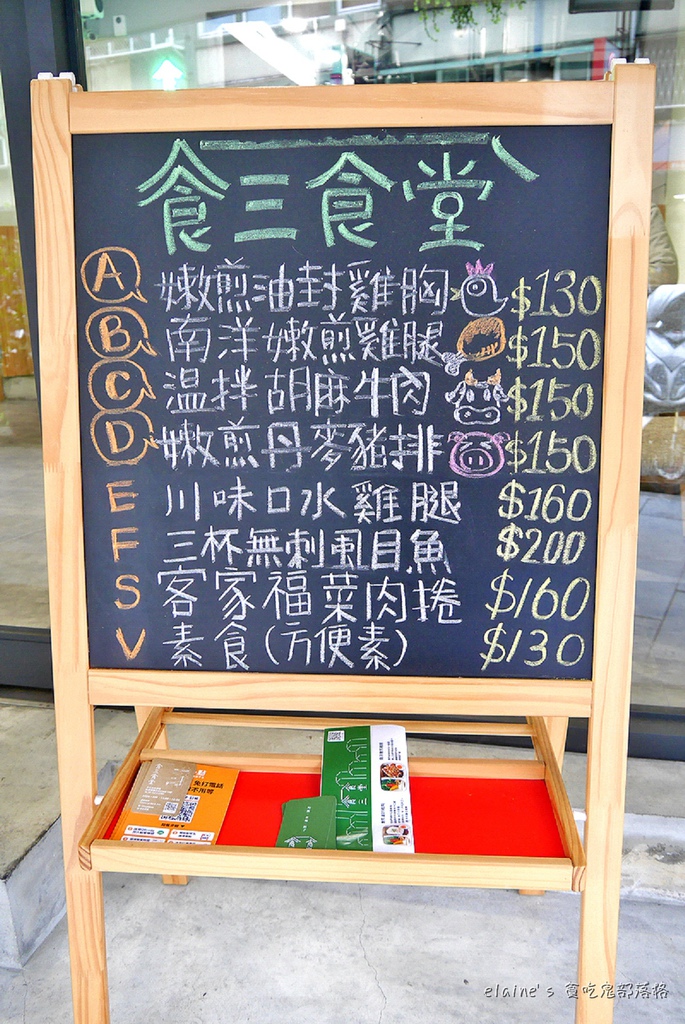 食三食堂
A 嫩煎油封雞胸 $130
B 南洋嫩煎雞腿 $150
C 溫拌胡麻牛肉 $150
D 嫩煎丹麥豬排 $150
E 川味口水雞腿 $160
F 三杯無刺虱目魚 $200
S 客家福菜肉捲 $160
V 素食(方便素) $130
食三食堂
elaine's 貪吃鬼部落格